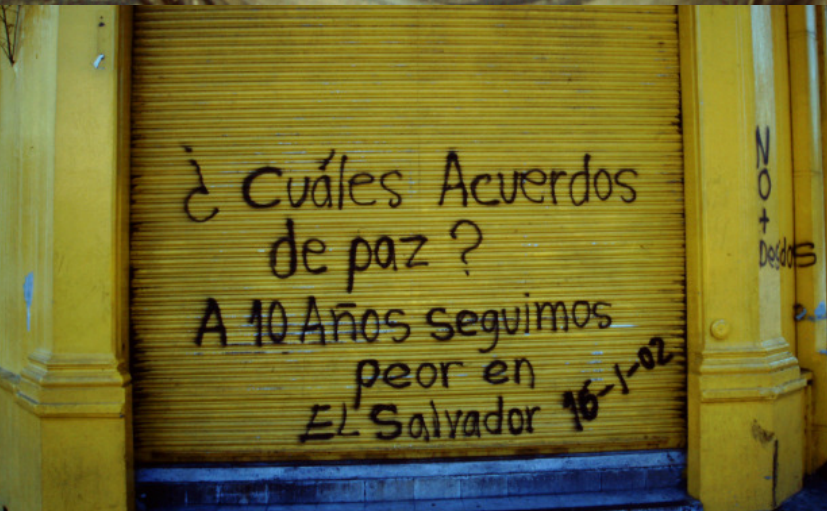 ¿ Cuáles Acuerdos
de paz ?
A 10 Años seguimos
peor en
EL Salvador 16-1-02
NO
+